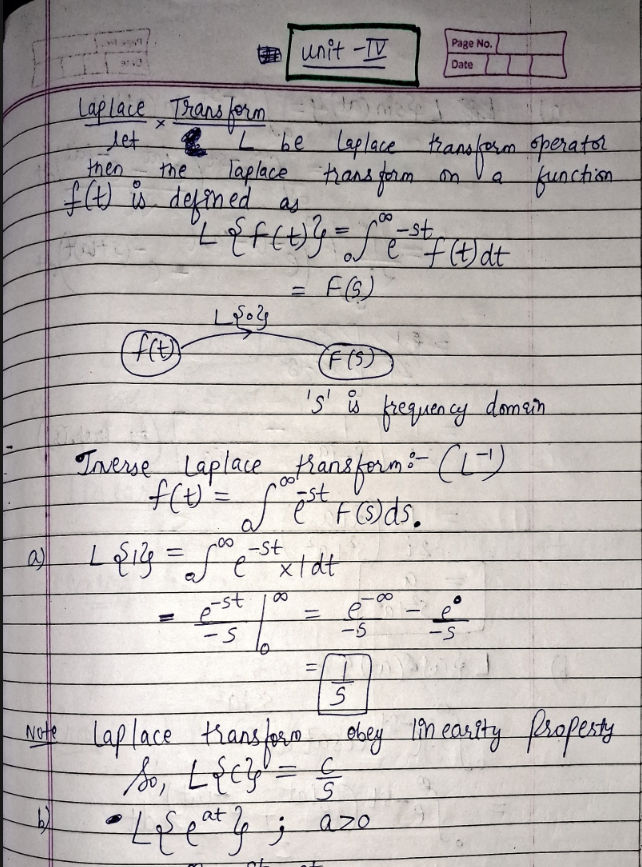 unit - IV
Page No.
Date
Laplace × Transform
let L be laplace transform operator
then the laplace transform on a function
f(t) is defined as
L {f(t)} = ₀∫^∞ e^-st f(t) dt
= F(s)
L{·}
f(t) F(s)
's' is frequency domain
Inverse Laplace transform:- (L^-1)
f(t) = ₀∫^∞ e^-st F(s) ds.
a) L {1} = ₀∫^∞ e^-st × 1 dt
= e^-st / -s |₀^∞ = e^-∞ / -s - e^0 / -s
= 1/s
Note Laplace transform obey linearity Property
So, L{c} = c/s
b) • L{e^at} ; a>0